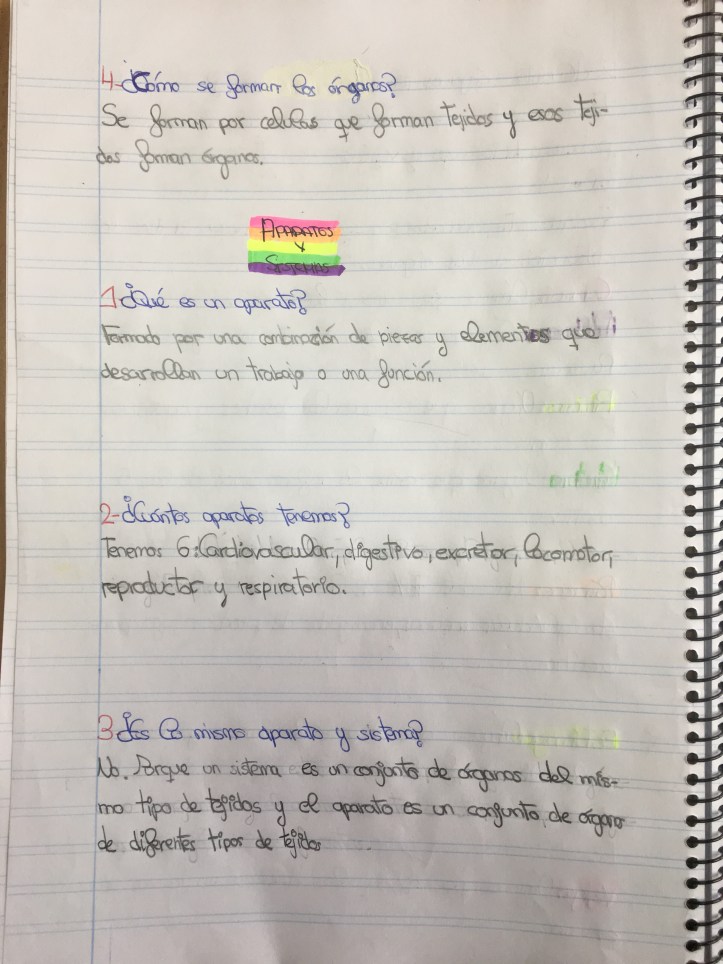 4-¿Cómo se forman los órganos?
Se forman por celulas que forman Tejidos y esos Teji-
dos forman órganos.
APARATOS
Y
SISTEMAS
1¿Qué es un aparato?
Formado por una combinación de piezas y elementos que
desarrollan un trabajo o una función.
2-¿Cuántos aparatos Tenemos?
Tenemos 6:Cardiovascular, digestivo, excretor, locomotor,
reproductor y respiratorio.
3¿Es lo mismo aparato y sistema?
No. Porque un sistema es un conjunto de órganos del mis-
mo tipo de tejidos y el aparato es un conjunto de órganos
de diferentes tipos de tejidos